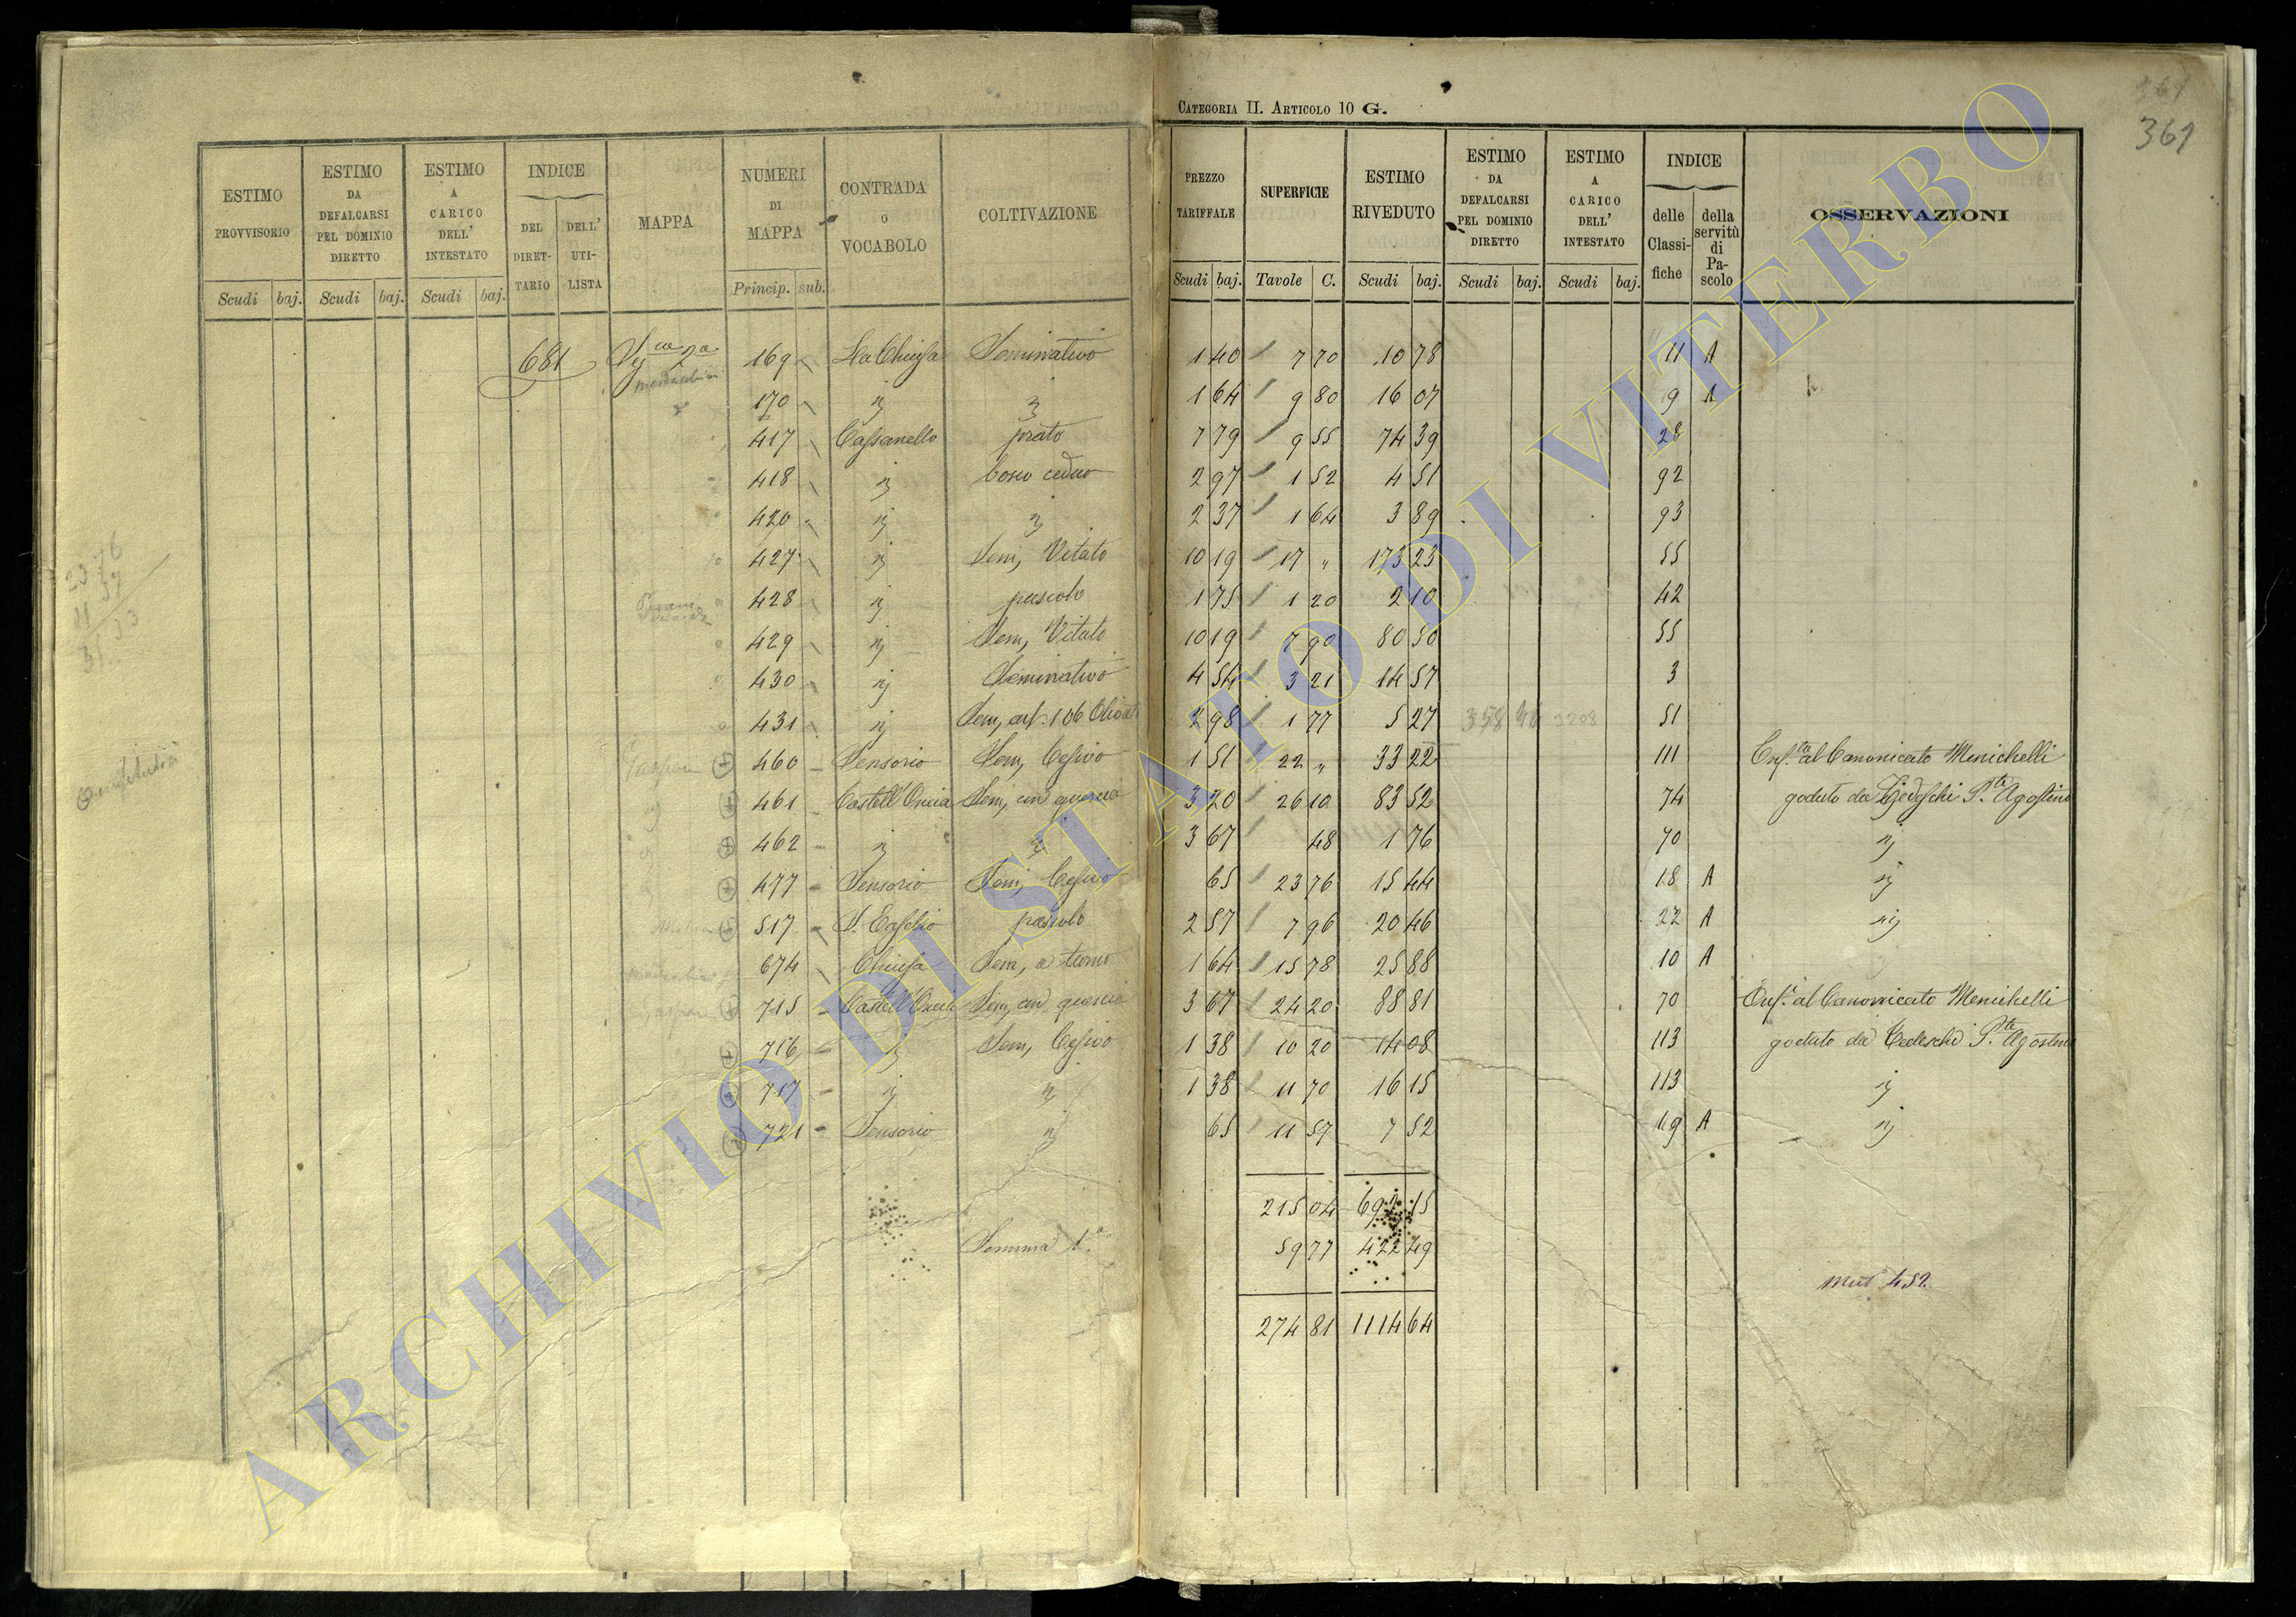 CATEGORIA II. ARTICOLO 10 G.
361
361
ESTIMO PROVVISORIO Scudi baj.
ESTIMO DA DEFALCARSI PEL DOMINIO DIRETTO Scudi baj.
ESTIMO A CARICO DELL' INTESTATO Scudi baj.
INDICE DEL DIRETTARIO DELL' UTILISTA
MAPPA
NUMERI DI MAPPA Princip. sub.
CONTRADA O VOCABOLO
COLTIVAZIONE
PREZZO TARIFFALE Scudi baj.
SUPERFICIE Tavole C.
ESTIMO RIVEDUTO Scudi baj.
ESTIMO DA DEFALCARSI PEL DOMINIO DIRETTO Scudi baj.
ESTIMO A CARICO DELL' INTESTATO Scudi baj.
INDICE delle Classifiche della servitù di Pascolo
OSSERVAZIONI
681 2a 169 La Chiusa Seminativo 1 40 7 70 10 78 11 A
170 " " 1 64 9 80 16 07 9 A
417 Cassanello prato 7 79 9 55 74 39 28
418 " bosco ceduo 2 97 1 52 4 51 92
420 " " 2 37 1 64 3 89 93
427 " Sem, Vitato 10 19 17 " 173 23 55
428 " pascolo 1 75 1 20 2 10 42
429 " Sem, Vitato 10 19 7 90 80 50 55
430 " Seminativo 4 54 3 21 14 57 3
431 " Sem, 2 98 1 77 5 27 358 46 3208 51
460 Sensorio Sem, Cesivo 1 51 22 " 33 22 111 Enf.ta al Canonicato Menichelli
461 Sem, con querce 3 20 26 10 83 52 74 goduto da Tedeschi P.te Agostino
462 " " 3 67 48 1 76 70 "
477 Sensorio Sem, Cesivo 65 23 76 15 44 18 A "
517 pascolo 2 57 7 96 20 46 22 A "
674 Chiusa Sem, a turno 1 64 15 78 25 88 10 A
715 Sem, con querce 3 67 24 20 88 81 70 Enf. al Canonicato Menichelli
716 " Sem, Cesivo 1 38 10 20 14 08 113 goduto da Tedeschi P.te Agostino
717 " " 1 38 11 70 16 15 113 "
721 Sensorio " 65 11 57 7 52 119 A "
215 04 692 15
Somma 1.a 59 77 422 49
274 81 1114 64
ARCHIVIO DI STATO DI VITERBO